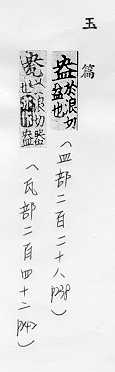 玉篇
盎於浪切盆也
(皿部二百二十八 p238)
㼜於浪切器也亦盎
(瓦部二百四十二 p242)